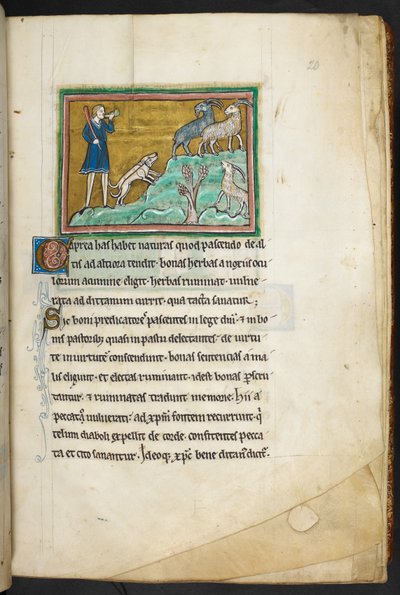 20
Caprea has habet naturas quod pascendo de al
tis ad altiora tendit · bonas herbas a noxiis ocu
lorum acumine eligit · herbas ruminat · vulne
rata ad dictamum currit · qua tacta sanatur ;
Sic boni predicatores pascentes in lege dni · & in bo
nis pastoribus quasi in pastu delectantes · de virtu
te in virtutem conscendunt · bonas sentencias a ma
lis eligunt · et electas ruminant · idest bonas perscru
tantur · & ruminatas tradunt memorie · hii a
peccatis vulnerati · ad xpm fontem recurrunt · q
telum diaboli expellit de corde · confitentes pecca
ta et cito sanantur · Ideoq; xpc bene ditan dictus